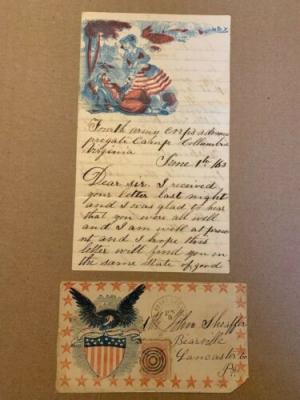 Fourth army Corps advance
Camp Columbia
Virginia
June 1th 186
Dear Sir. I received
your letter last night
and I was glad to hear
that you were all well
and I am well at pres
nt, and I hope this
letter will find you in
the same state of good
Mr John Sheaffer
Bearville
Lancaster Co
Pa